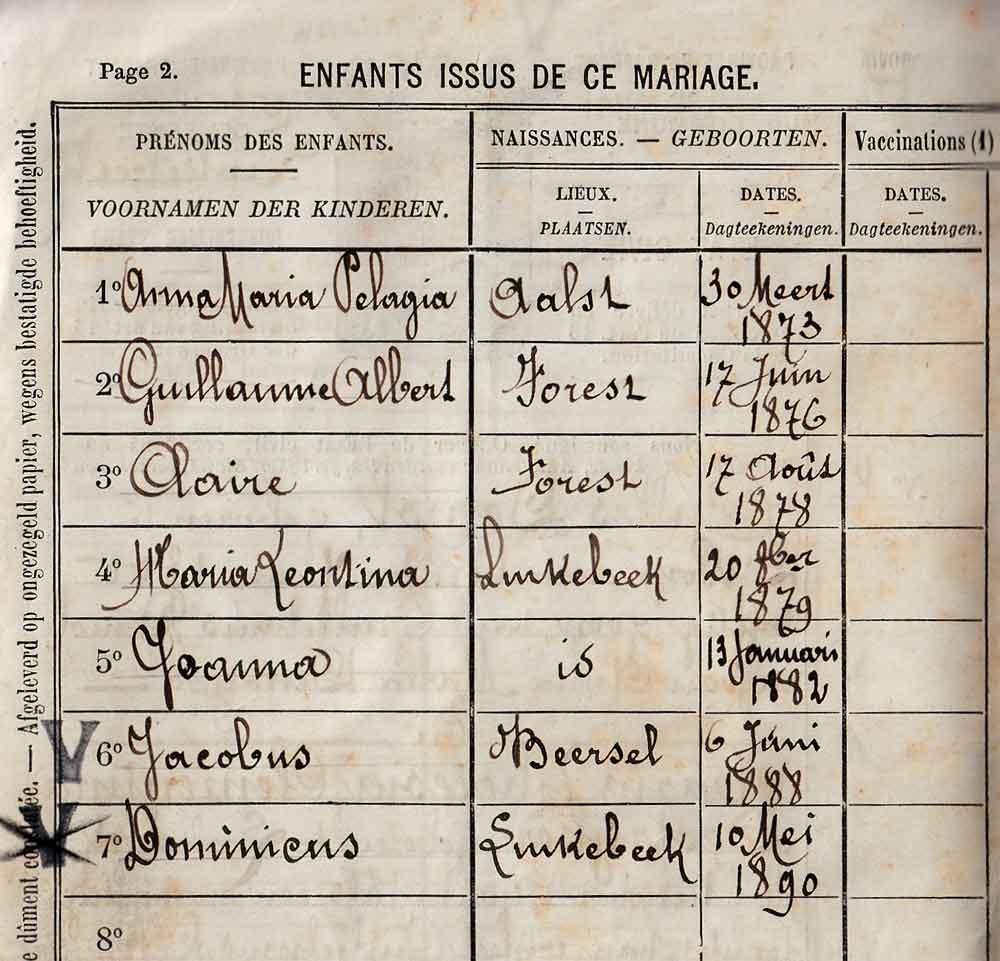 Page 2.
ENFANTS ISSUS DE CE MARIAGE.
PRÉNOMS DES ENFANTS.
VOORNAMEN DER KINDEREN.
NAISSANCES. — GEBOORTEN.
Vaccinations (1)
LIEUX.
PLAATSEN.
DATES.
Dagteekeningen.
DATES.
Dagteekeningen.
1º Anna Maria Pelagia Aalst 30 Meert
1873
2º Guillaume Albert Forest 17 Juin
1876
3º Claire Forest 17 Août
1878
4º Maria Leontina Linkebeek 20
1879
5º Joanna is 13 Januari
1882
V
6º Jacobus Beersel 6 Juni
1888
V
7º Dominicus Linkebeek 10 Mei
1890
8º
e dûment — Afgeleverd op ongezegeld papier, wegens bestatigde behoeftigheid.